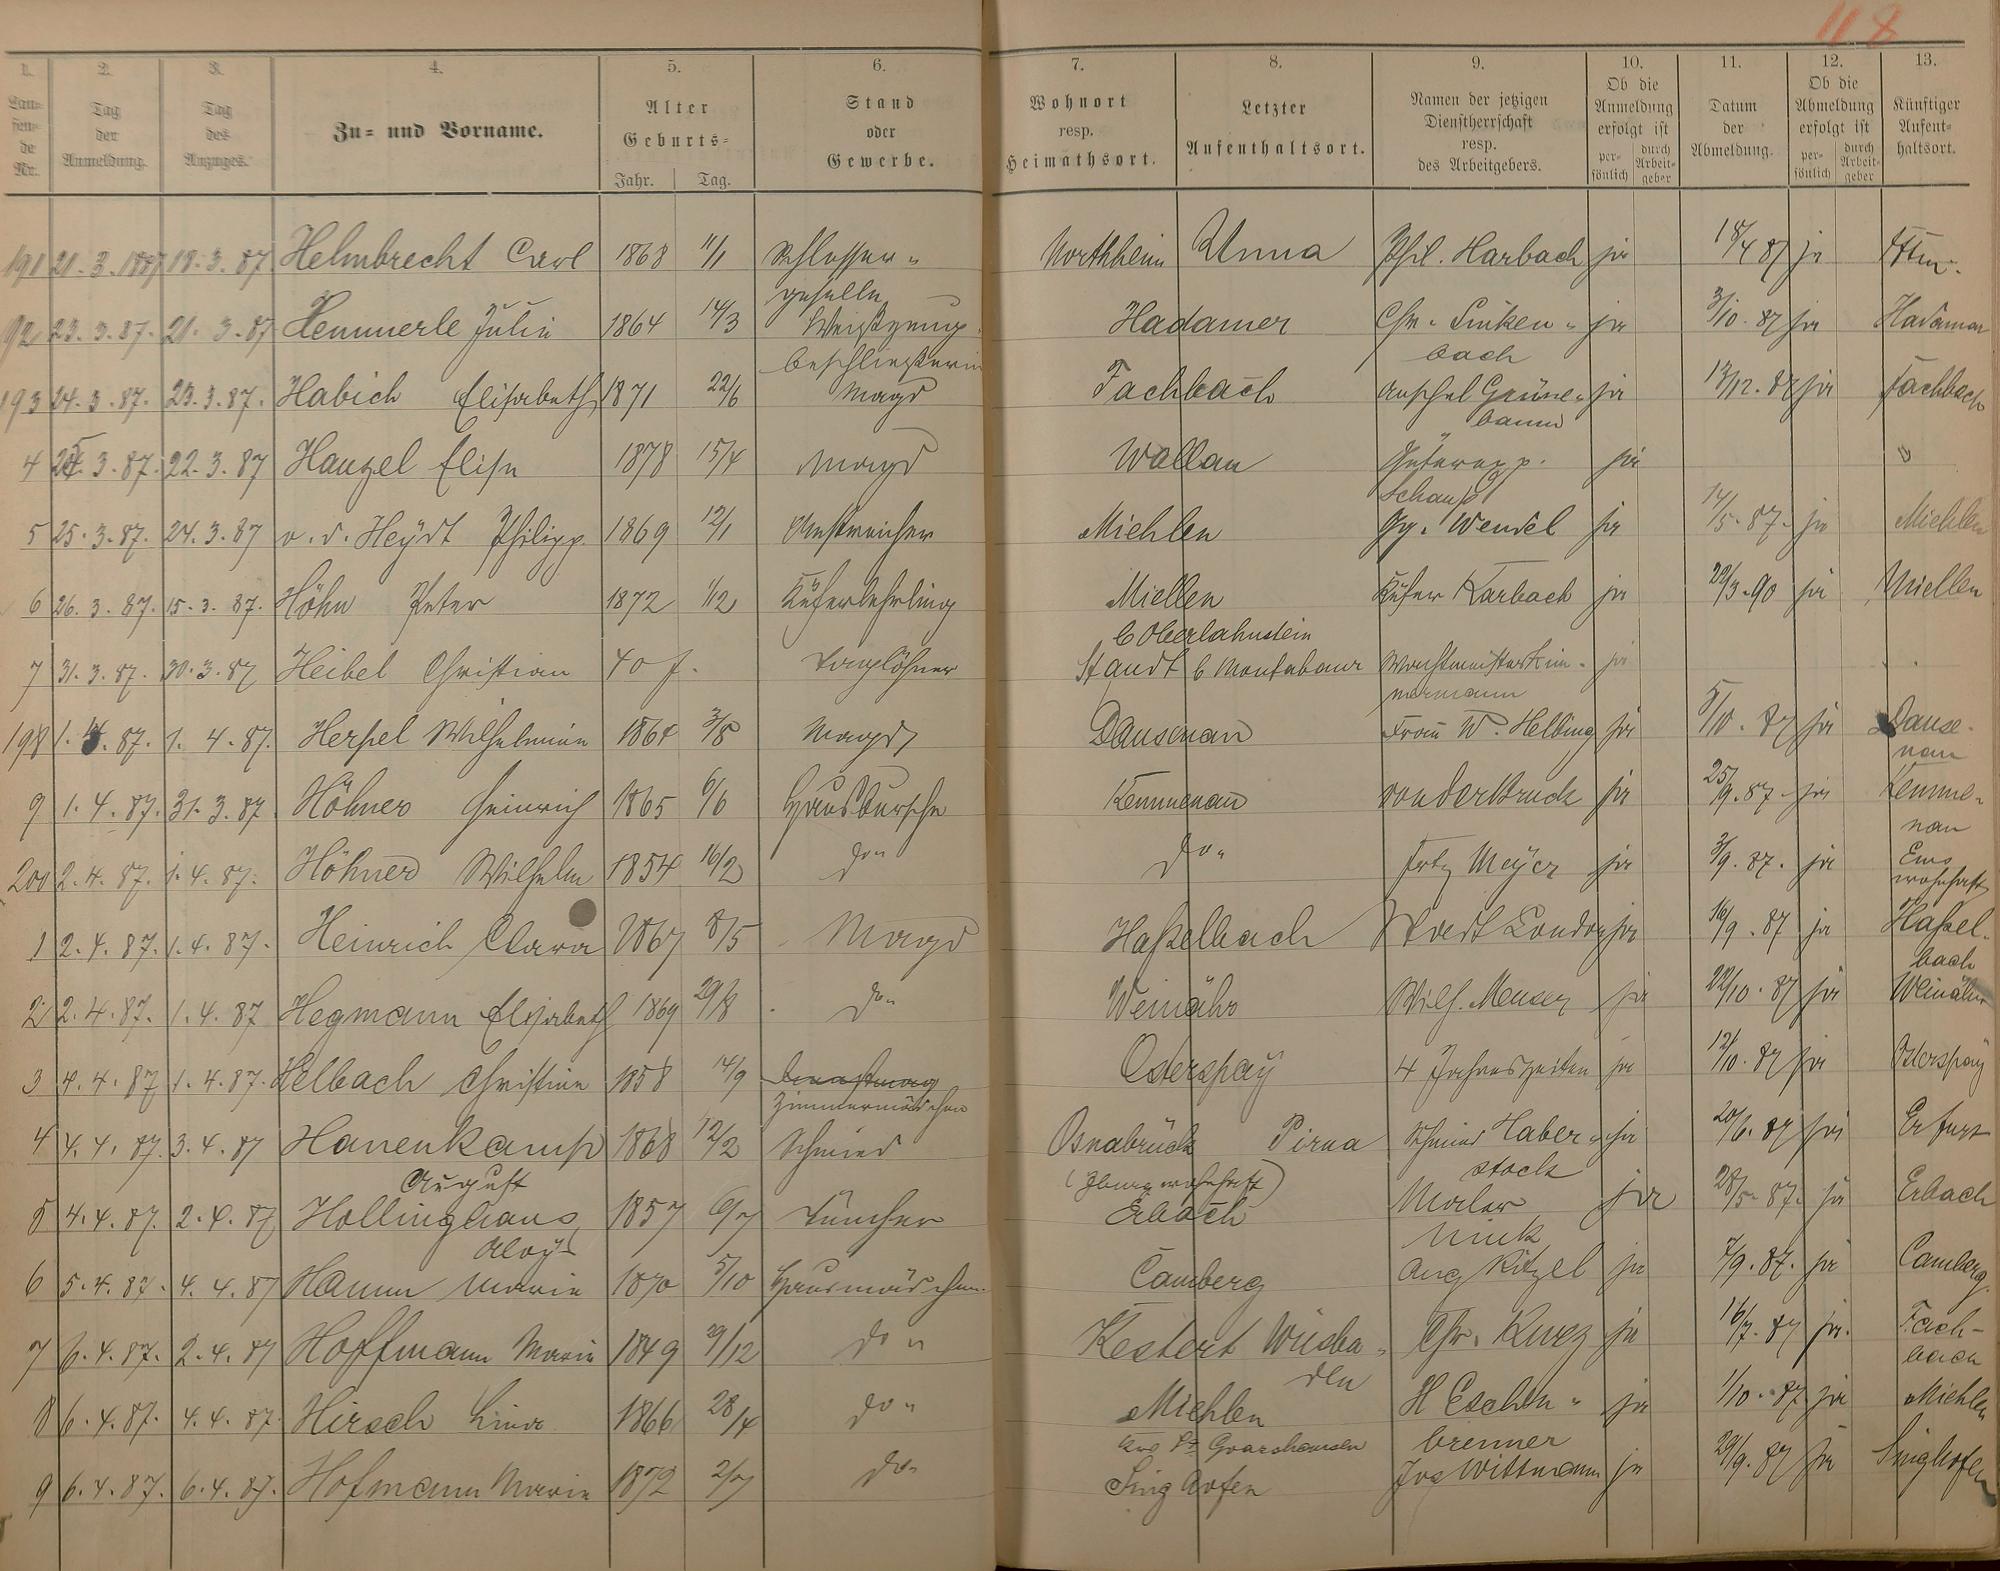 118
1. 2. 3. 4. 5. 6. 7. 8. 9. 10. 11. 12. 13.
Laufende Nr. Tag der Anmeldung. Tag des Anzuges. Zu- und Vorname. Alter Geburts- Jahr. Tag. Stand oder Gewerbe. Wohnort resp. Heimathsort. Letzter Aufenthaltsort. Namen der jetzigen Dienstherrschaft resp. des Arbeitgebers. Ob die Anmeldung erfolgt ist persönlich durch Arbeitgeber Datum der Abmeldung. Ob die Abmeldung erfolgt ist persönlich durch Arbeitgeber Künftiger Aufenthaltsort.
191 21.3.1887 18.3.87 Helmbrecht Carl 1868 11/1 Schlosser- Northheim Unna Phil. Harbach ja 18/4 87 ja
geselle
92 23.3.87. 21.3.87 Hemmerle Julie 1864 14/3 Weißzeug- Hadamer Chr. Linken- ja 3/10.87 ja Hadamar
beschließerin bach
193 24.3.87. 23.3.87. Habich Elisabeth 1871 22/6 Magd Fachbach Anschel Grüne- ja 13/12.87 ja Fachbach
baum
4 24.3.87. 22.3.87 Hanzel Elise 1878 15/4 Magd Wallau Güterexp. ja
5 25.3.87. 24.3.87 v.d. Heydt Philipp 1869 12/1 Anstreicher Miehlen Gg. Wendel ja 14/5.87. ja Miehlen
6 26.3.87. 15.3.87. Höhn Peter 1872 1/2 Küferlehrling Miellen Küfer Karbach ja 22/3.90 ja Miellen
b Oberlahnstein
7 31.3.87. 30.3.87 Heibel Christian 40 J. Taglöhner Staudt b Montabaur Wachtmeister Zim- ja
mermann
198 1.4.87. 1.4.87. Herpel Wilhelmine 1864 3/8 Magd Dausenau Frau W. Helbing ja 5/10.87 ja Dause-
nau
9 1.4.87. 31.3.87 Höhner Heinrich 1865 6/6 Hausbursche Kemmenau von der Bruck ja 25/9.87. ja Kemme-
nau
200 2.4.87. 1.4.87. Höhner Wilhelm 1854 16/2 do" do" Fritz Meyer ja 3/9.87. ja Ems
wohnhaft
1 2.4.87. 1.4.87. Heinrich Clara 1867 8/5 Magd Haßelbach Stadt London ja 16/9.87 ja Haßel-
bach
2 2.4.87. 1.4.87 Hegmann Elisabeth 1869 29/8 do" Weinähr Wilh. Meuser ja 22/10.87 ja Weinähr
3 4.4.87 1.4.87. Helbach Christine 1858 14/9 Osterspay 4 Jahreszeiten ja 12/10.87 ja Osterspay
Zimmermädchen
4 4.4.87. 3.4.87 Hanenkamp 1868 12/2 Schmied Osnabrück Pirna Schmied Haber- ja 20/6.87 ja Erfurt
August (Iburg wohnhaft) stock
5 4.4.87. 2.4.87 Hollinghaus 1857 6/7 Tüncher Erbach Maler ja 28/5.87. ja Erbach
Aloys Mink
6 5.4.87. 4.4.87 Hamm Marie 1870 5/10 Hausmädchen Camberg Aug Ritzel ja 7/9.87. ja Camberg.
7 6.4.87. 2.4.87 Hoffmann Marie 1849 29/12 do " Kestert Wiesba- Chr. Kurz ja 16/7.87 ja. Fach-
den bach
8 6.4.87. 4.4.87. Hirsch Lina 1866 28/4 do " Miehlen H Eschen- ja 1/10.87 ja Miehlen
St Goarshausen brenner
9 6.4.87. 6.4.87. Hofmann Marie 1872 2/7 do" Singhofen Jos Wittmann ja 29/9.87 ja Singhofen